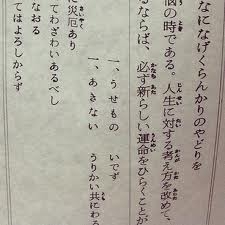 なになげくらんかりのやどりを
悩の時である。人生に対する考え方を改めて、
るならば、必ず新しい運命をひらくことが
一、うせもの　いでず
一、あきない　うりかい共にわる
災厄あり
てわざわいあるべし
なおる
てはよろしからず